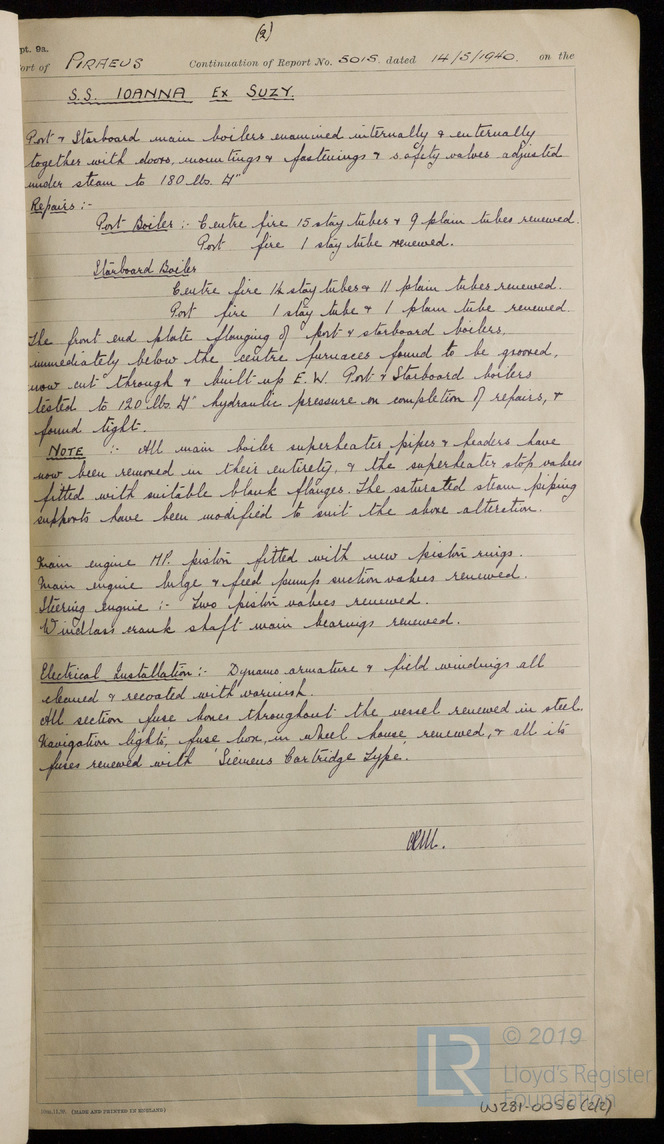 (2)
pt. 9a.
ort of PIRAEUS Continuation of Report No. 5015. dated 14/5/1940. on the
S.S. IOANNA Ex SUZY.
Port & Starboard main boilers examined internally & externally
together with doors, mountings & fastenings & safety valves adjusted
under steam to 180 lbs. □"
Repairs :-
Port Boiler :- Centre fire 15 stay tubes & 9 plain tubes renewed.
Port fire 1 stay tube renewed.
Starboard Boiler
Centre fire 14 stay tubes & 11 plain tubes renewed.
Port fire 1 stay tube & 1 plain tube renewed.
The front end plate flanging of port & starboard boilers,
immediately below the centre furnaces found to be grooved,
now cut through & built up E.W. Port & Starboard boilers
tested to 120 lbs. □" hydraulic pressure on completion of repairs, &
found tight.
NOTE :- All main boiler superheater pipes & headers have
now been removed in their entirety, & the superheater stop valves
fitted with suitable blank flanges. The saturated steam piping
supports have been modified to suit the above alteration.
Main engine HP. piston fitted with new piston rings.
Main engine bilge & feed pumps suction valves renewed.
Steering engine :- Two piston valves renewed.
Windlass crank shaft main bearings renewed.
Electrical Installation :- Dynamo armature & field windings all
cleaned & recoated with varnish.
All section fuse boxes throughout the vessel renewed in steel.
Navigation lights' fuse box, in wheel house, renewed, & all its
fuses renewed with 'Siemens Cartridge Type'.
© 2019
LR
Lloyd's Register
Foundation
W281-0056 (2/2)
(MADE AND PRINTED IN ENGLAND)